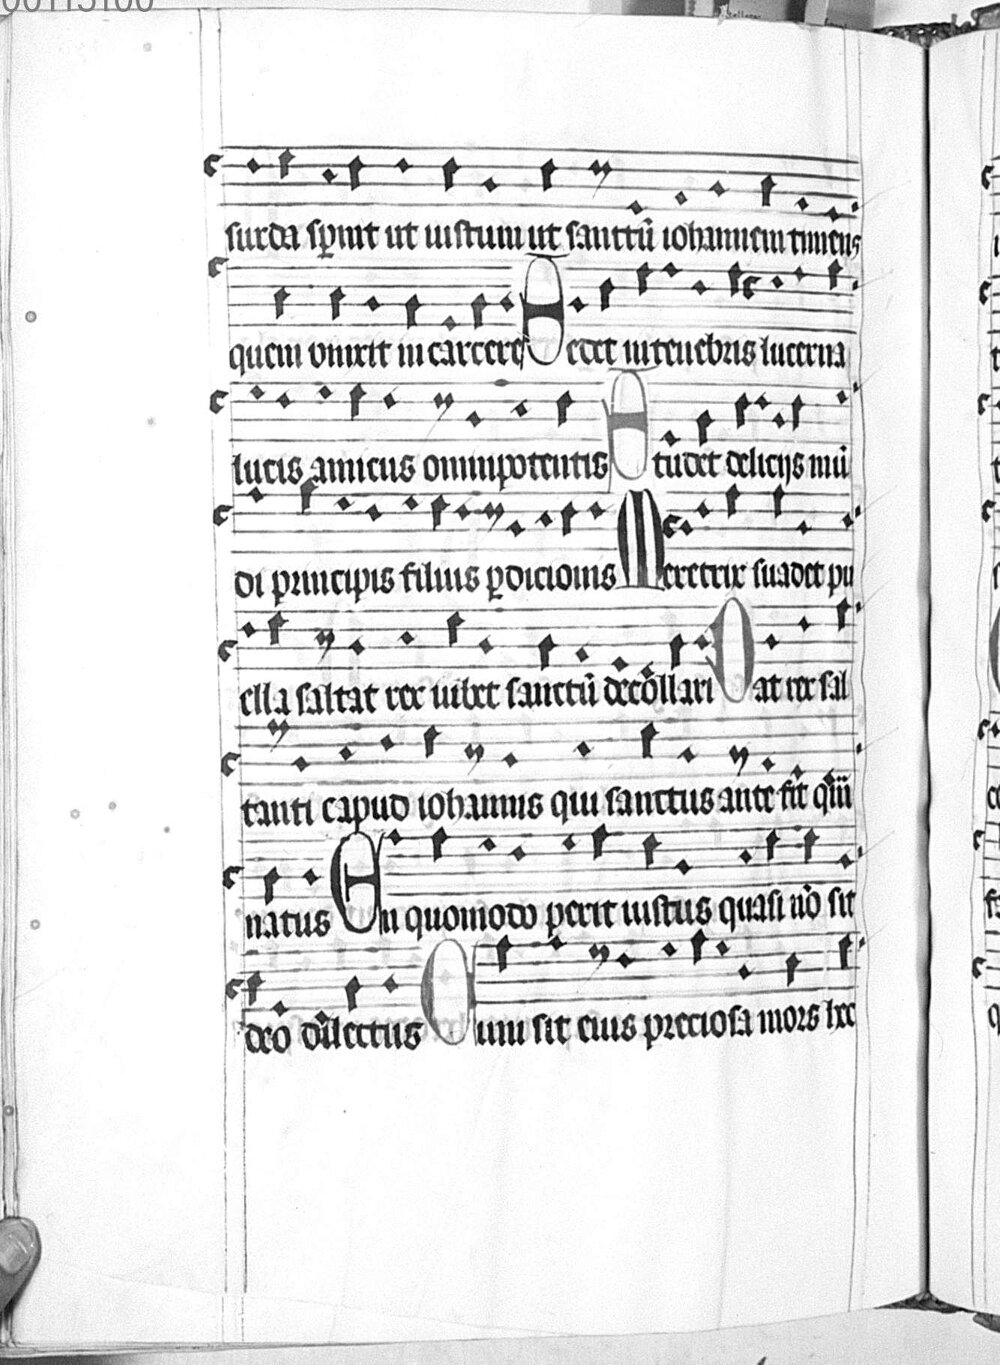 surda sp̱nit ut iustum ut sanctū iohannem timens
quem vinxit in carcere Sedet in tenebris lucerna
lucis amicus omnipotentis Studet delicijs mū
di principis filius p̱dicionis Meretrix suadet pu
ella saltat rex iubet sanctū decollari Dat rex sal
tanti capud iohannis qui sanctus ante fit qͣm
natus En quomodo perit iustus quasi nō sit
deo dilectus Cum sit eius preciosa mors hec